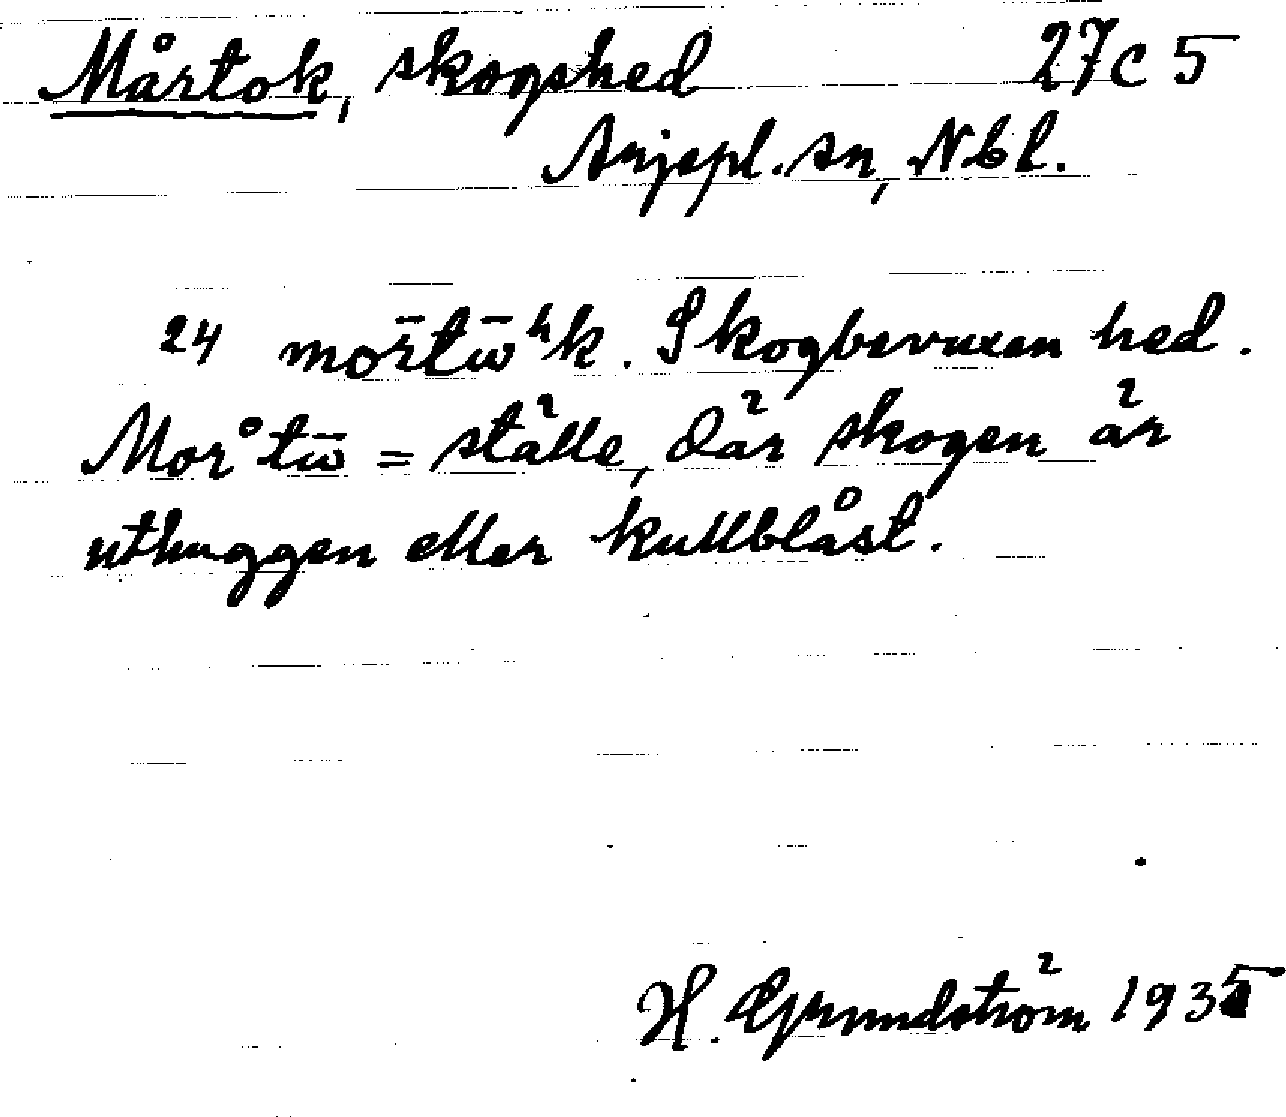 Mårtok, skogshed 27C5
Arjepl. sn, Nbl.
24 mor̄tω̄ʰk. Skogbevuxen hed.
Morᵒtω̄ = ställe, där skogen är
uthuggen eller kullblåst.
H. Grundström 1935